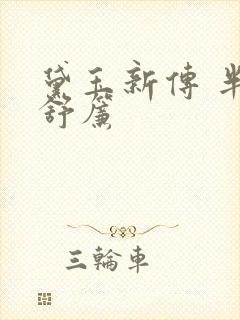 黛玉新傳 半
舒簾
三輪車